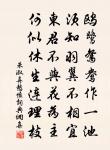 鷗鷺鴛鴦作一池
須知羽翼不相宜
東君不與花為主
何似休生連理枝
朱淑真愁懷詞典網集